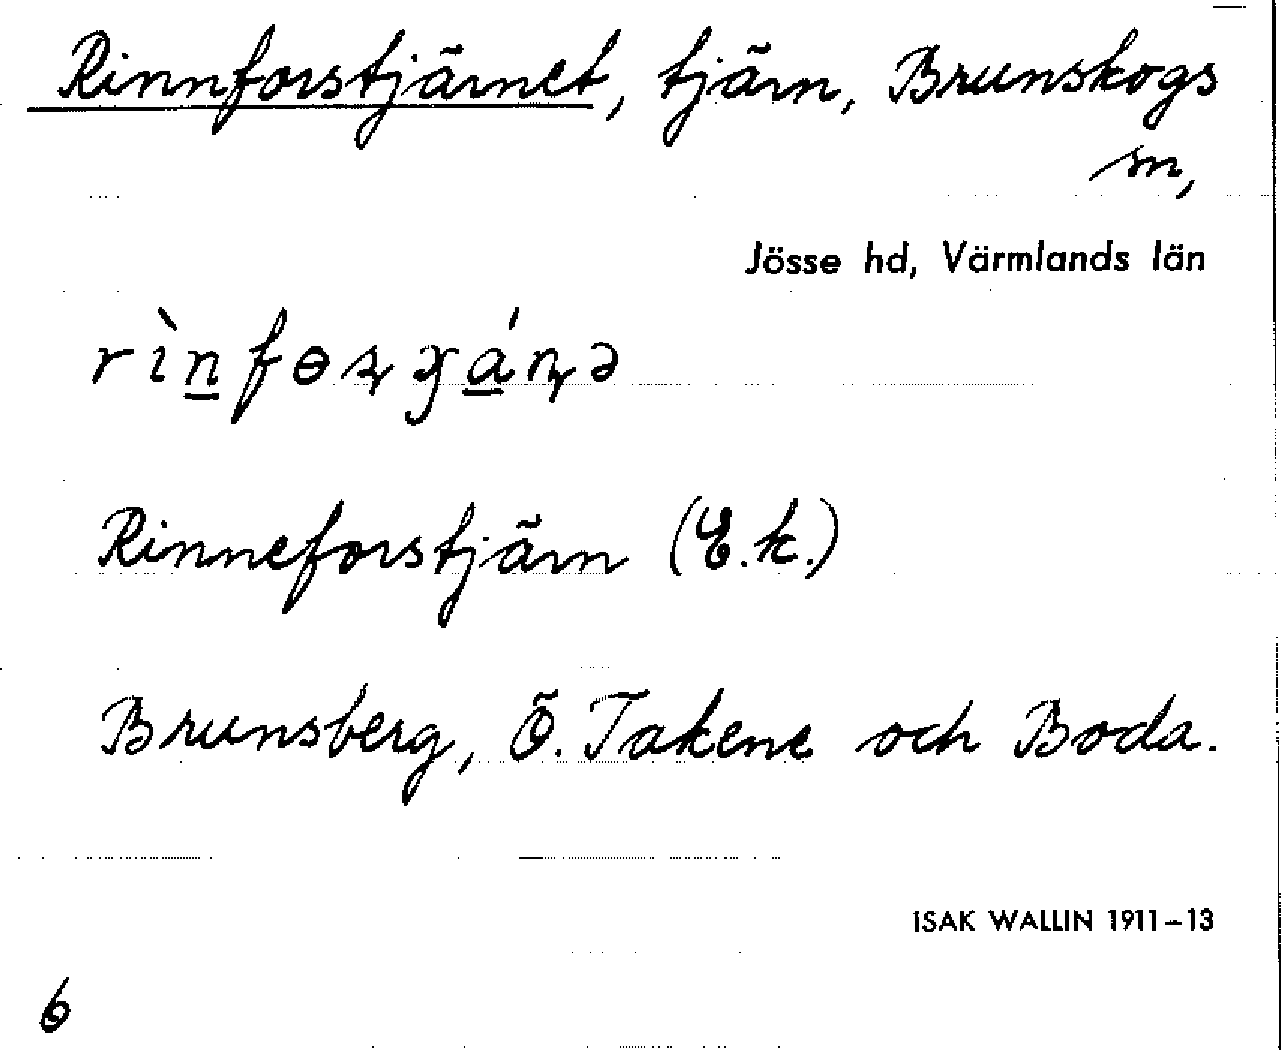 Rinnforstjärnet, tjärn, Brunskogs
sn,
Jösse hd, Värmlands län
Rinneforstjärn (E.k.)
Brunsberg, Ö. Takene och Boda.
ISAK WALLIN 1911–13
6